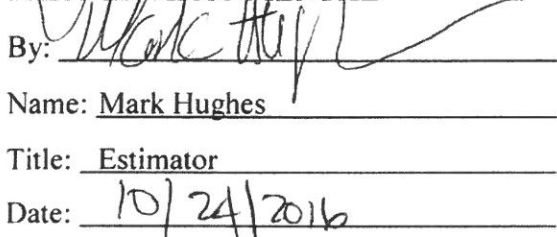 By: Mark Hugh
Name: Mark Hughes
Title: Estimator
Date: 10/24/2016